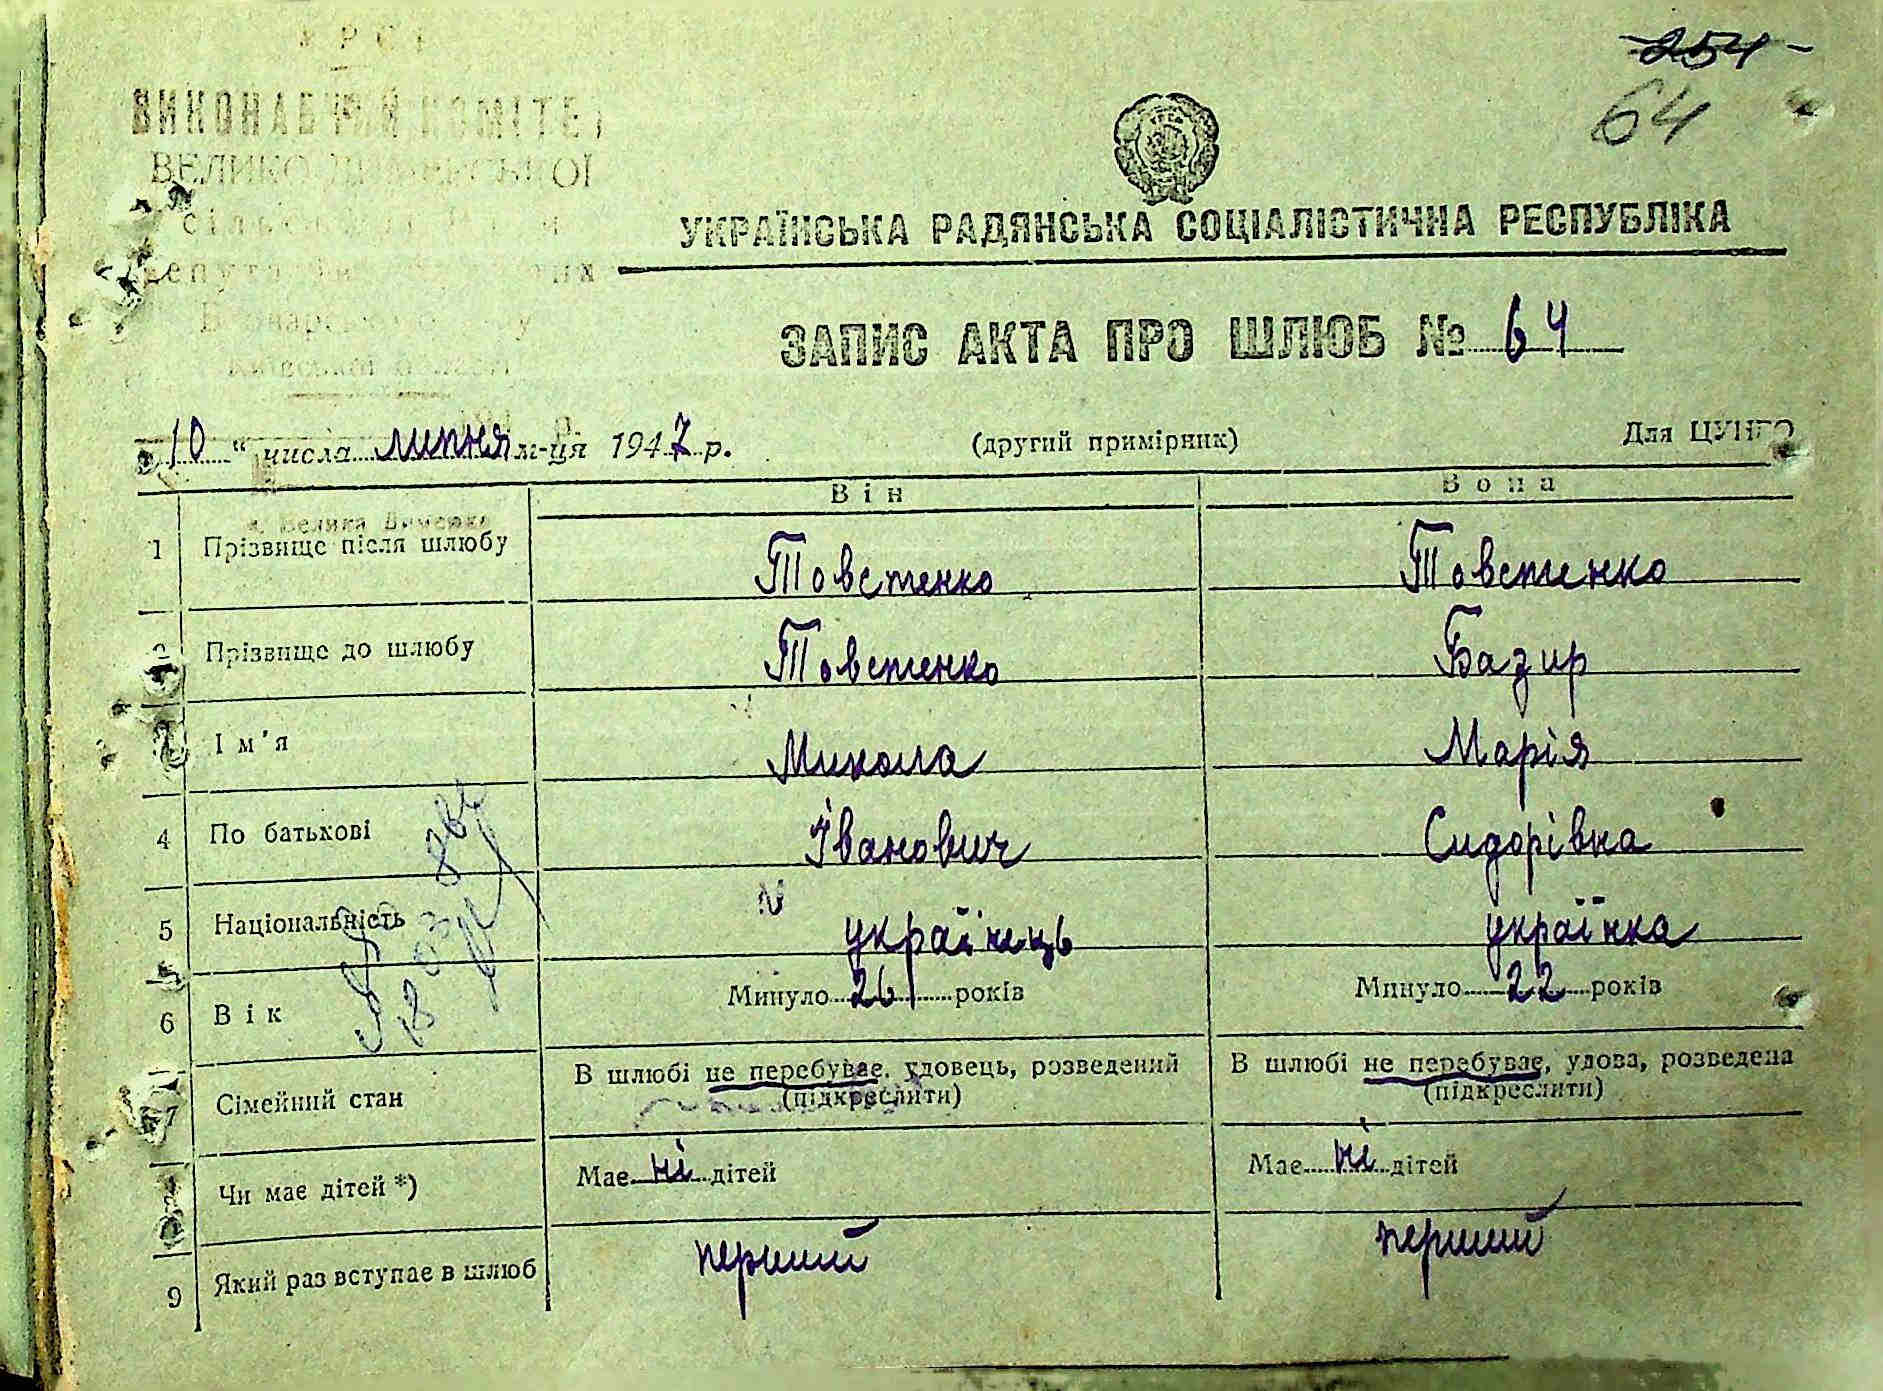 УРСР
ВИКОНАВЧИЙ КОМІТЕТ
ВЕЛИКО ДИМЕРСЬКОЇ
сільської Ради
депутатів трудящих
Броварського р-ну
Київської області
254
64
УКРАЇНСЬКА РАДЯНСЬКА СОЦІАЛІСТИЧНА РЕСПУБЛІКА
ЗАПИС АКТА ПРО ШЛЮБ № 64
10 " числа липня м-ця 1947 р.
(другий примірник)
Для ЦУНГО
Він
Вона
с. Велика Димерка
1 Прізвище після шлюбу Товстенко Товстенко
2 Прізвище до шлюбу Товстенко Базир
Ім'я Микола Марія
4 По батькові Іванович Сидорівна
5 Національність українець українка
6 Вік Минуло 26 років Минуло 22 років
7 Сімейний стан В шлюбі не перебуває, удовець, розведений (підкреслити) В шлюбі не перебуває, удова, розведена (підкреслити)
Чи має дітей *) Має ні дітей Має ні дітей
9 Який раз вступає в шлюб перший перший